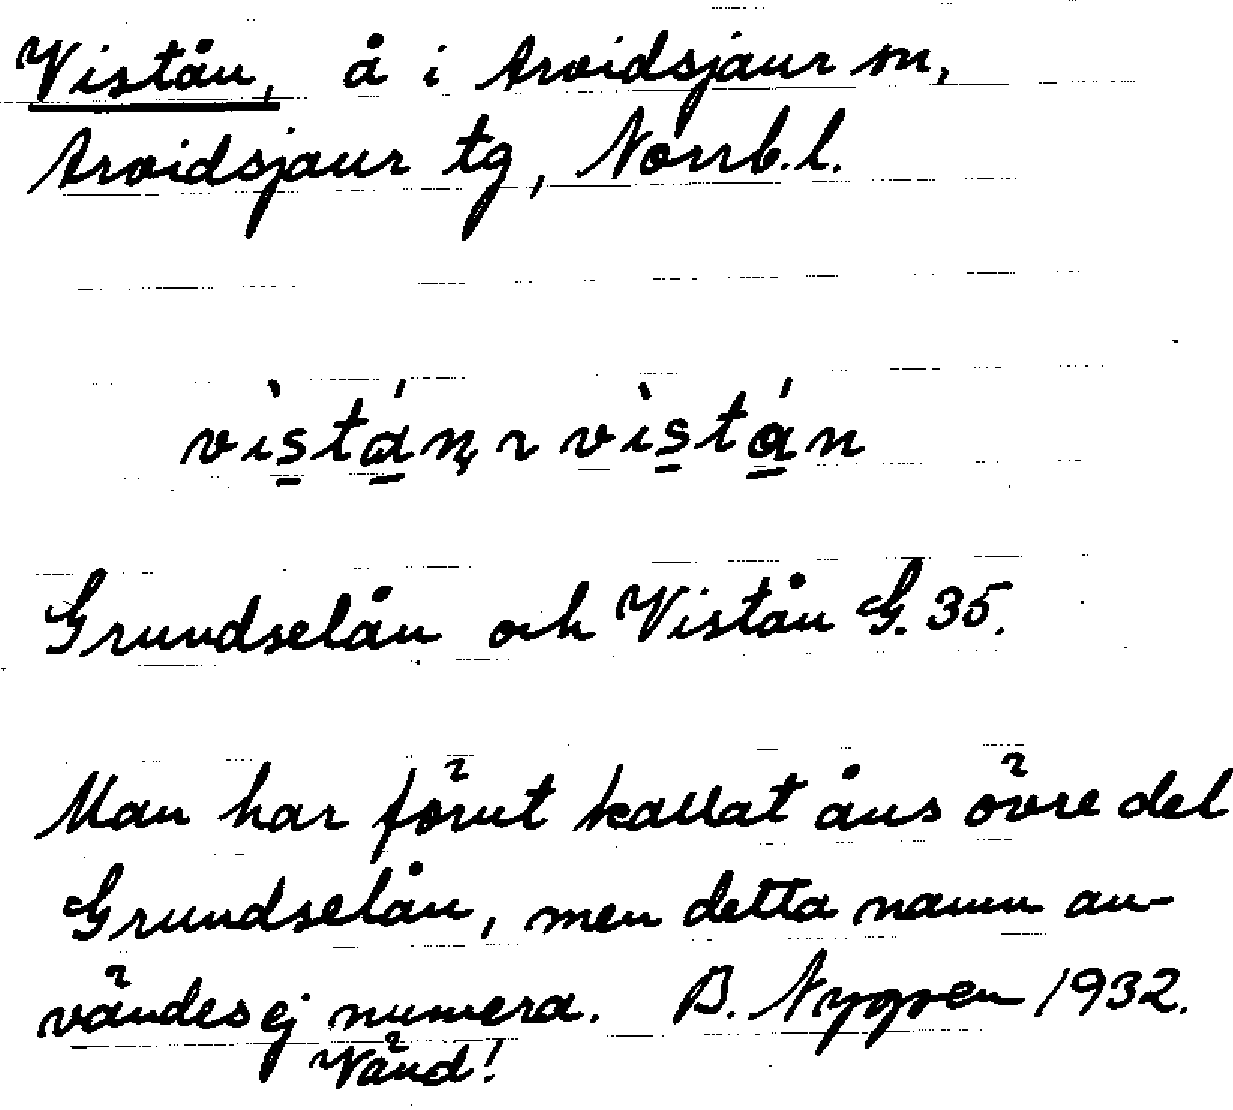 Vistån, å i Arvidsjaur sn,
Arvidsjaur tg, Norrb. l.
vìstán, ~ vìstán
Grundselån och Vistån G. 35.
Man har förut kallat åns övre del
Grundselån, men detta namn an-
vändes ej numera. B. Nygren 1932.
Vänd!